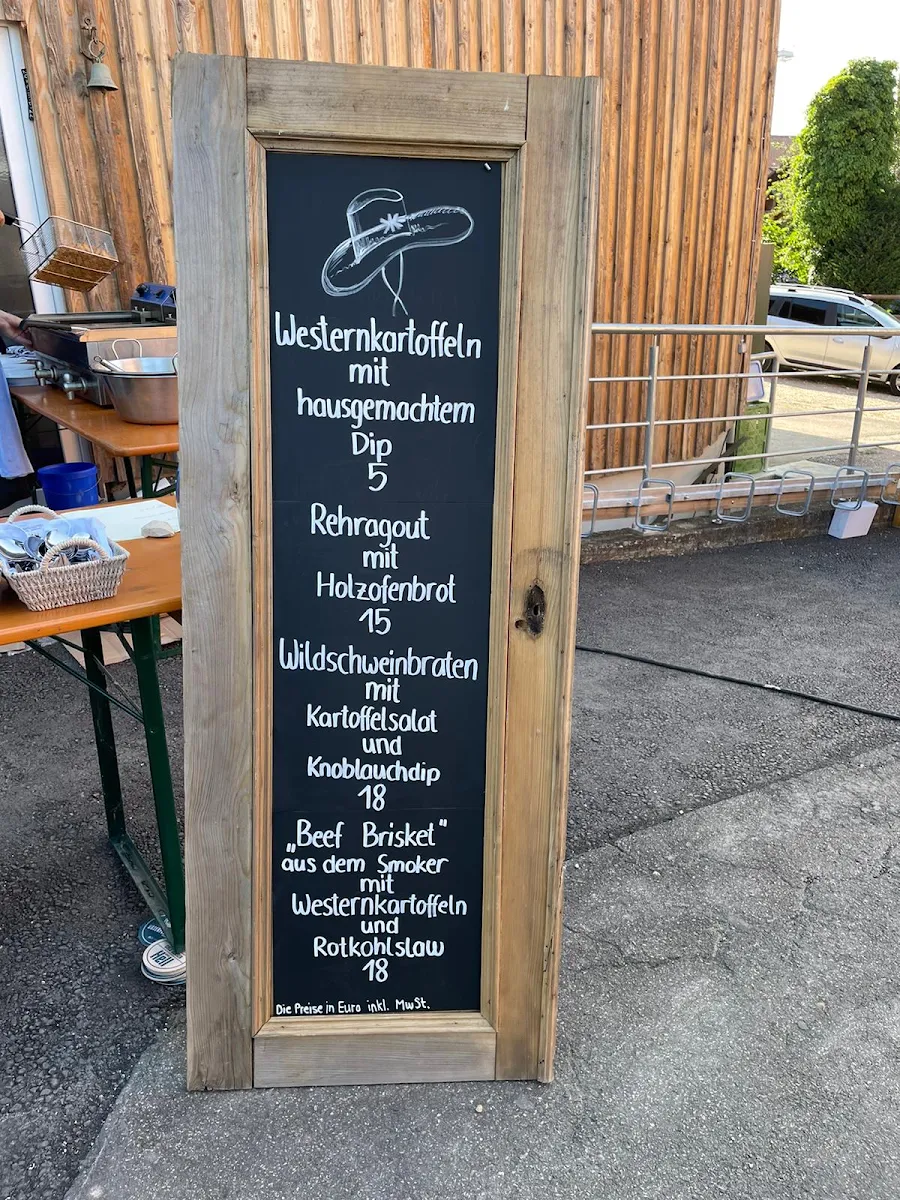 Westernkartoffeln
mit
hausgemachtem
Dip
5
Rehragout
mit
Holzofenbrot
15
Wildschweinbraten
mit
Kartoffelsalat
und
Knoblauchdip
18
„Beef Brisket"
aus dem Smoker
mit
Westernkartoffeln
und
Rotkohlslaw
18
Die Preise in Euro inkl. MwSt.